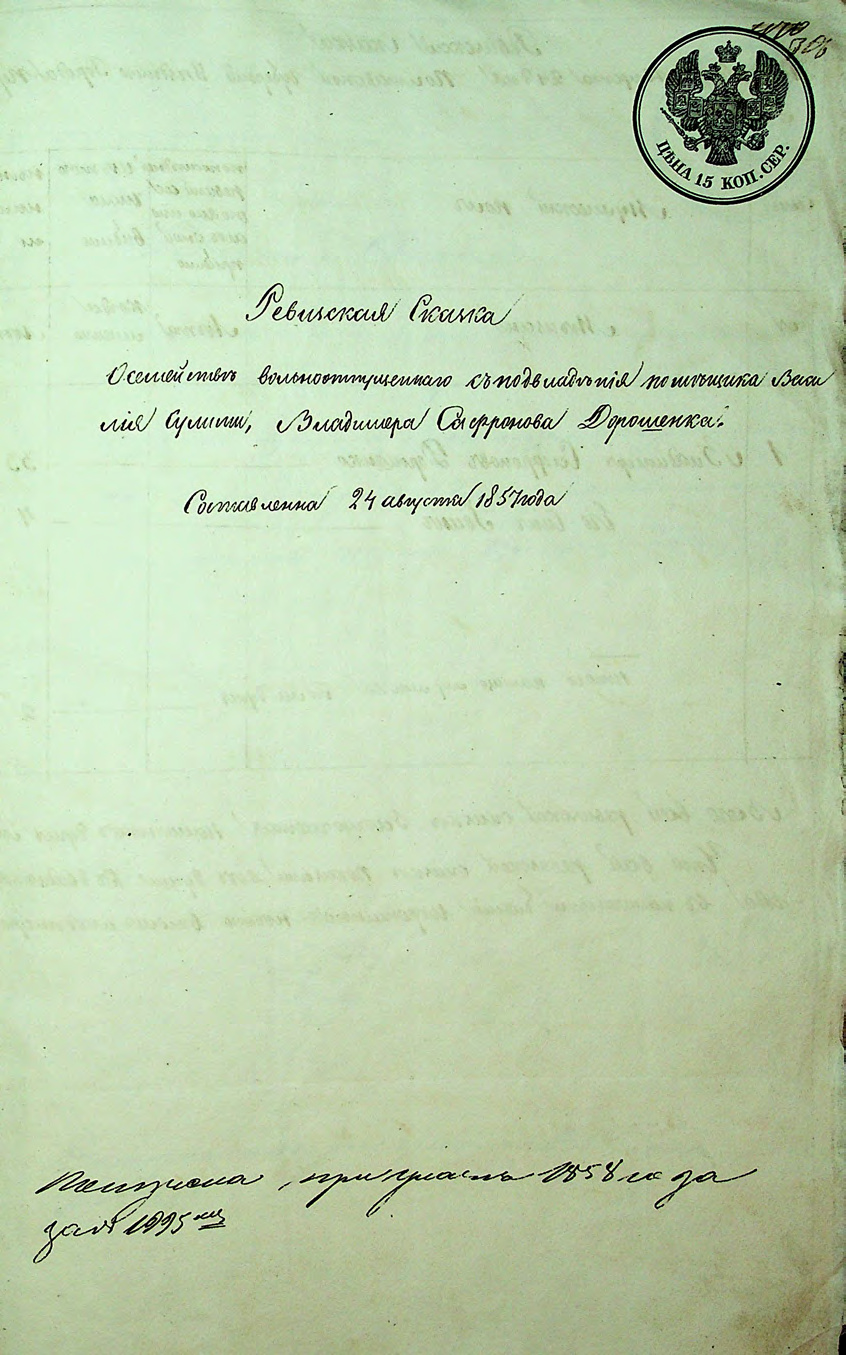 306
ЦѢНА 15 КОП. СЕР.
Ревизская Сказка
О семействѣ вольноотпущеннаго съ подвладѣнія помѣщика Васи
лія Сулимы, Владимера Сафронова Дорошенка.
Составленна 24 августа 1857 года
1858 года
за № 1995